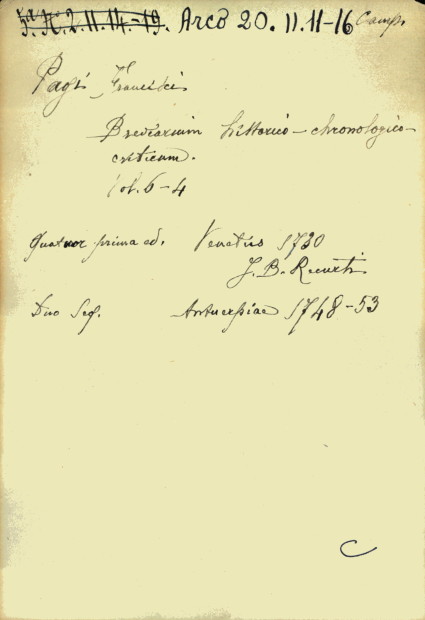 Arcò 20. II. 11-16 Camp.
Pagi Francisci
Breviarium historico-chronologico-
criticum.
Vol. 6-4
Quatuor prima ed. Venetiis 1730
J. B. Recurti
Duo Seq. Antuerpiae 1748-53
C